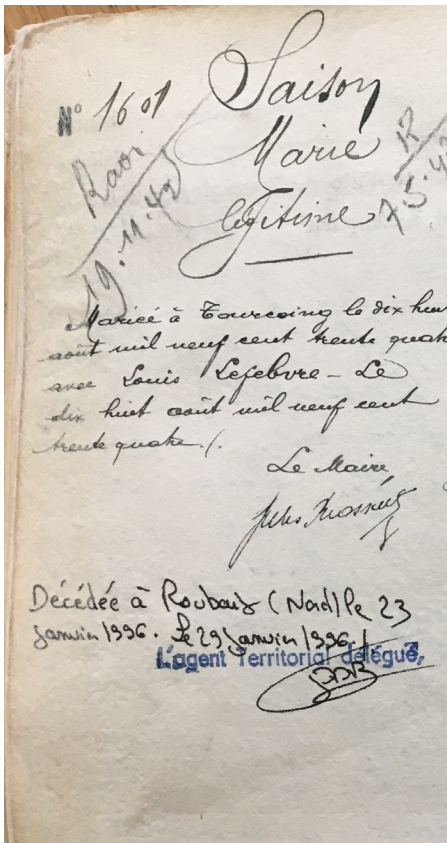 N° 1601
Saison
Marie
légitime
19.11.42
7.5.4
Mariée à Tourcoing le dix huit
août mil neuf cent trente quatre
avec Louis Lefebvre - Le
dix huit août mil neuf cent
trente quatre ./.
Le Maire
Décédée à Roubaix (Nord) le 23
Janvier 1996. Le 29 Janvier 1996.
L'agent Territorial délégué,